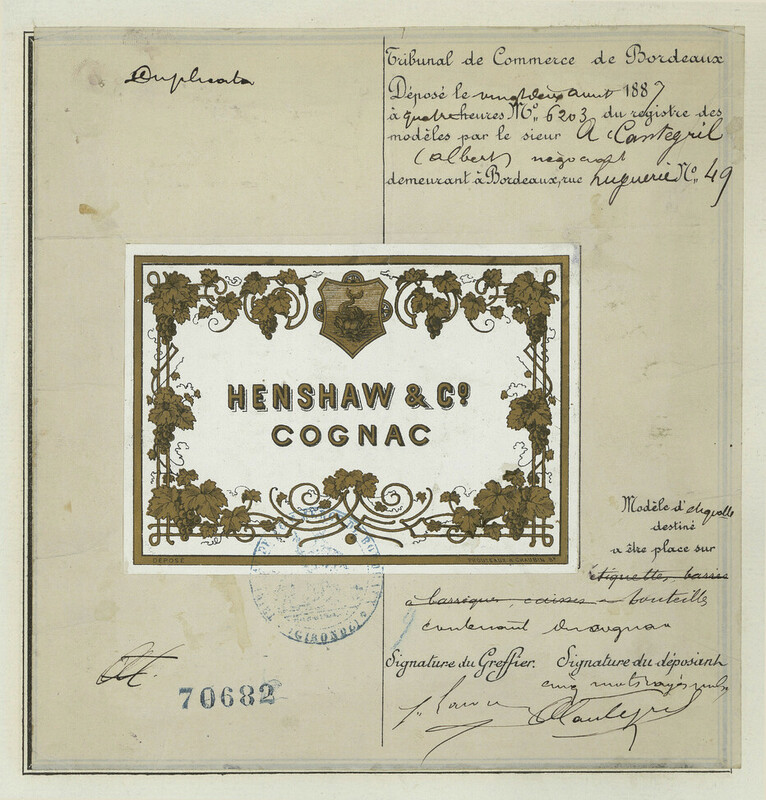 Duplicata
Tribunal de Commerce de Bordeaux
Déposé le vingt deux avril 1887
à quatre heures No. 6203 du registre des
modèles par le sieur A Cantegril
(Albert) négociant
demeurant à Bordeaux, rue huguerie No. 49
HENSHAW & Co
COGNAC
DÉPOSÉ
Modèle d'étiquette
destiné
a être place sur
étiquette, barri
à barriques, caisses bouteille
contenant du cognac
Signature du Greffier. Signature du déposant
cinq mots rayés nuls
GIRONDE
70682